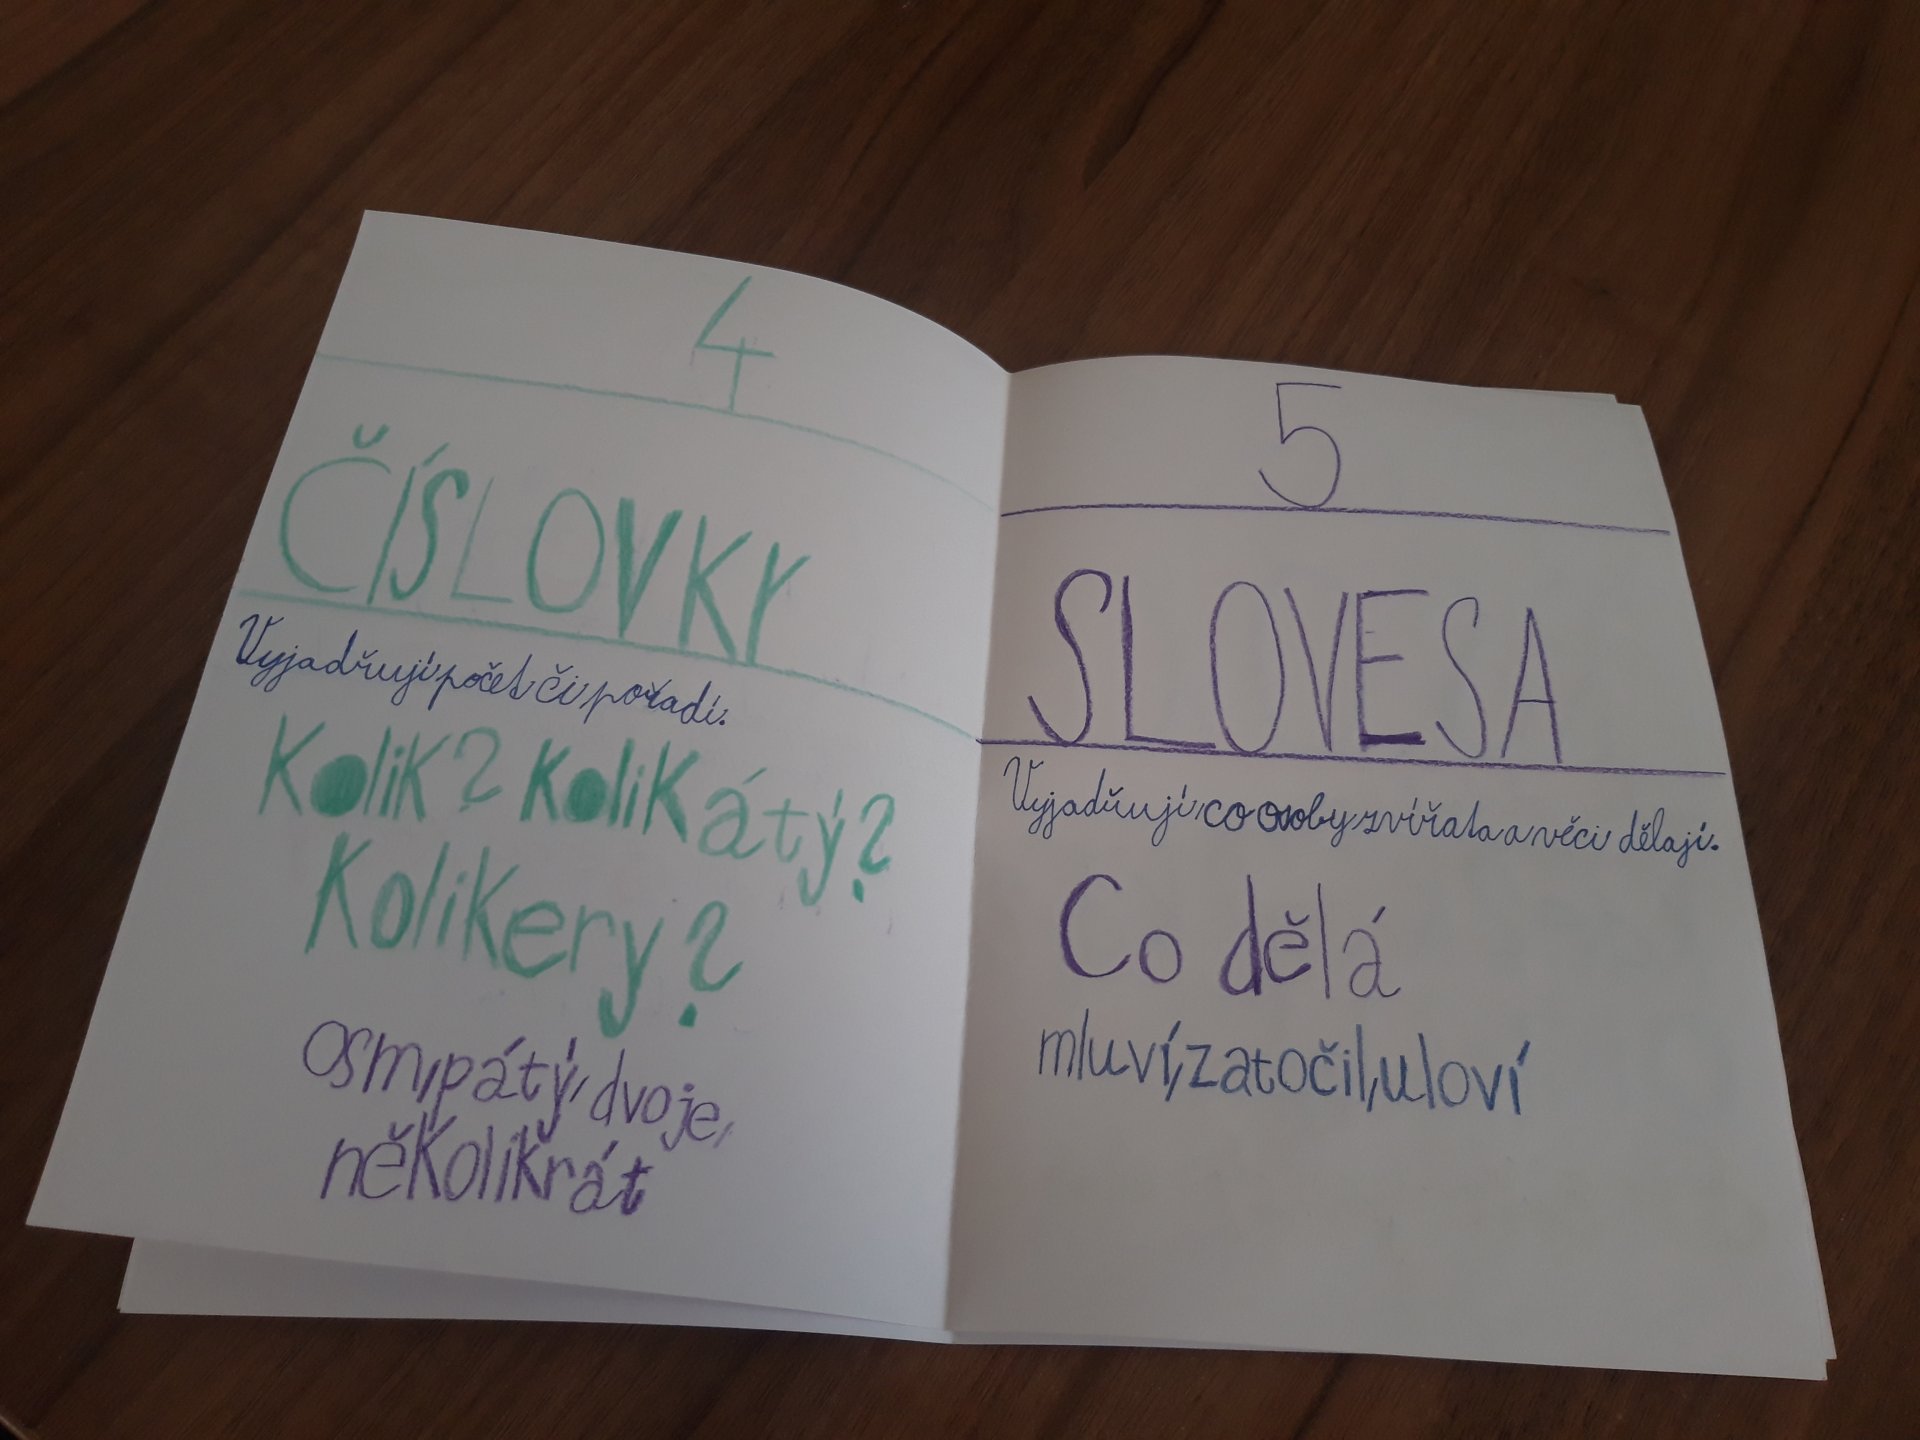 4
ČÍSLOVKY
Vyjadřují počet či pořadí.
Kolik? Kolikátý?
Kolikery?
osm, pátý, dvoje,
několikrát
5
SLOVESA
Vyjadřují, co osoby, zvířata a věci dělají.
Co dělá
mluví, zatočil, uloví